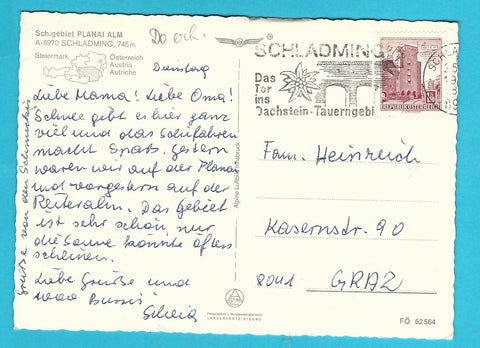 Schigebiet PLANAI ALM
A-8970 SCHLADMING, 745 m
Steiermark
Österreich
Austria
Autriche
Do erh.
Dienstag
Liebe Mama! Liebe Oma!
Schnee gibt es hier ganz
viel und das Schifahren
macht Spass. Gestern
waren wir auf der Planai
und vorgestern auf der
Reiteralm. Das Gebiet
ist sehr schön, nur
die Sonne könnte öfters
scheinen.
Liebe Grüße und
1000 Bussi
Silvia
Grüße von den
Alpine Luftbild Innsbruck
SCHLADMING
Das
Tor
ins
Dachstein-Tauerngebi
REPUBLIK ÖSTERREICH
Fam. Heinreich
Kasernstr. 90
8041 GRAZ
LANDESVERTEIDIGUNG
FÖ 62564